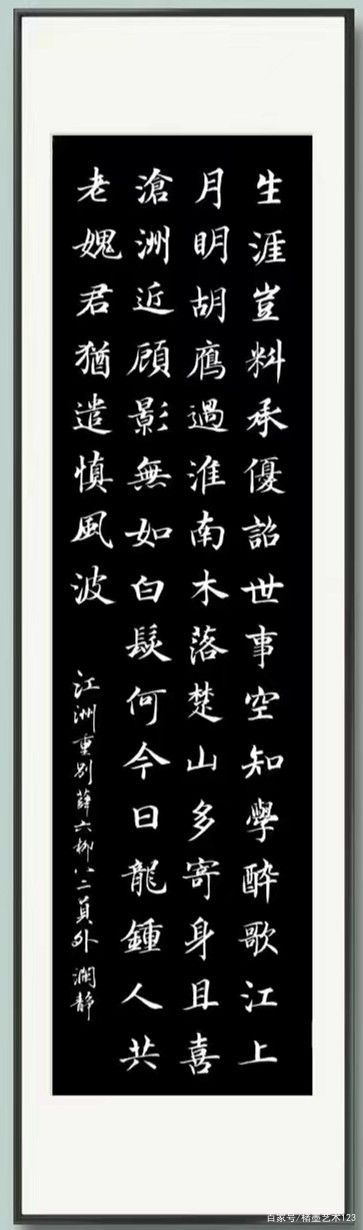 生涯豈料承優詔世事空知學醉歌江上
月明胡鴈過淮南木落楚山多寄身且喜
滄洲近顧影無如白髮何今日龍鍾人共
老媿君猶遣慎風波
江洲重別薛六柳八二員外 澜靜
百家号/橘墨艺术123